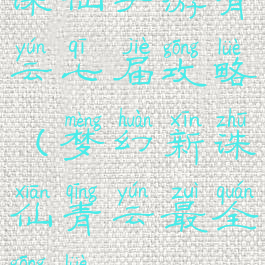 诛仙手游青
yún qī jiè gōng luè
云七届攻略
mèng huàn xīn zhū
（梦幻新诛
xiān qīng yún zuì quán
仙青云最全